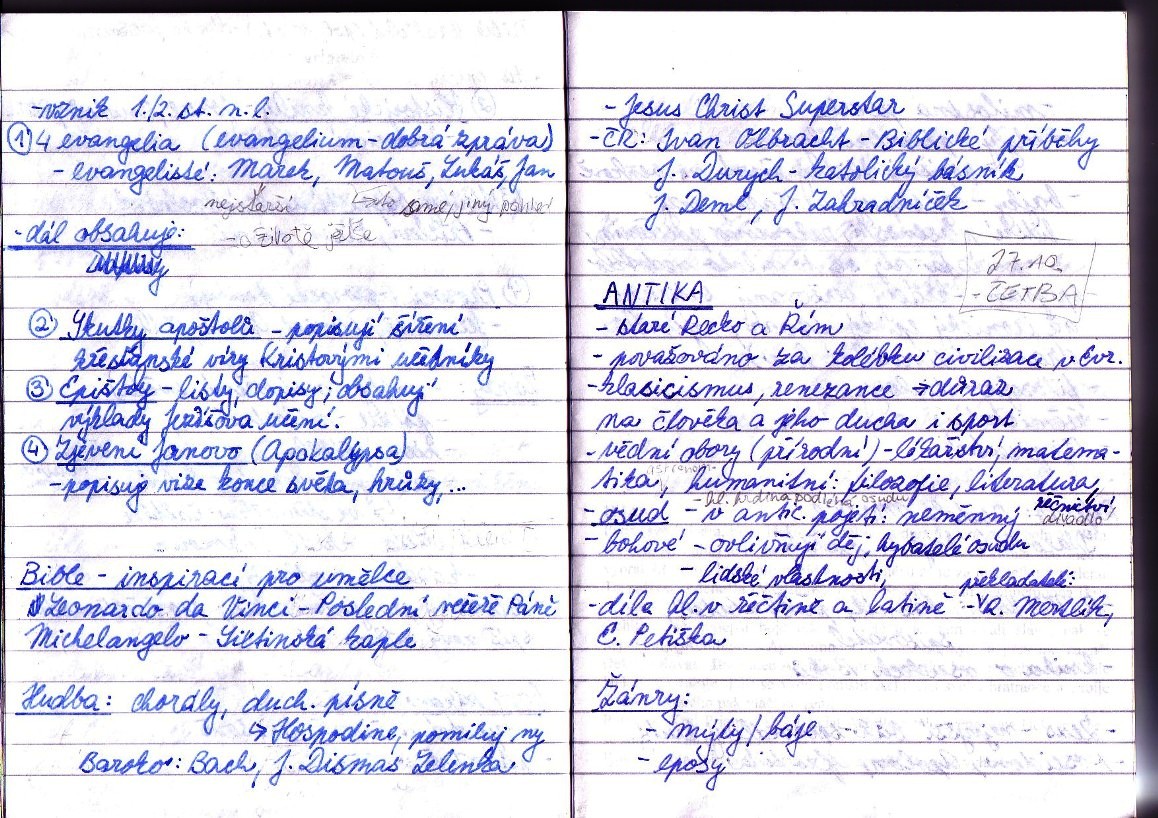 -vznik 1./2. st. n. l.
① 4 evangelia (evangelium - dobrá zpráva)
- evangelisté: Marek, Matouš, Lukáš, Jan
nejstarší ← to samé, jiný pohled
- dál obsahuje: - o životě ježíše
② Skutky apoštolů - popisují šíření
křesťanské víry Kristovými učedníky
③ Epištoly - listy, dopisy; obsahují
výklady Ježíšova učení.
④ Zjevení Janovo (Apokalypsa)
- popisuje vize konce světa, hrůzy, ...
Bible - inspirací pro umělce
Leonardo da Vinci - Poslední večeře Páně
Michelangelo - Sixtinská kaple
Hudba: chorály, duch. písně
↳ Hospodine, pomiluj ny
Baroko: Bach, J. Dismas Zelenka
- Jesus Christ Superstar
- ČR: Ivan Olbracht - Biblické příběhy
J. Durych - katolický básník
J. Deml, J. Zahradníček
27.10.
- ČETBA
ANTIKA
- staré Řecko a Řím
- považováno za kolébku civilizace v Evr.
- klasicismus, renezance → důraz
na člověka a jeho ducha i sport
- vědní obory (přírodní) - lékařství, matema-
tika, astronom. humanitní: filozofie, literatura,
řečnictví, divadlo
hl. hrdina podléhá osudu
- osud - v antic. pojetí: neměnný
- bohové - ovlivňují děj, hybatelé osudu
- lidské vlastnosti,
překladatelé:
- díla hl. v řečtině a latině - R. Mertlík,
E. Petiška
Žánry:
- mýty / báje
- eposy